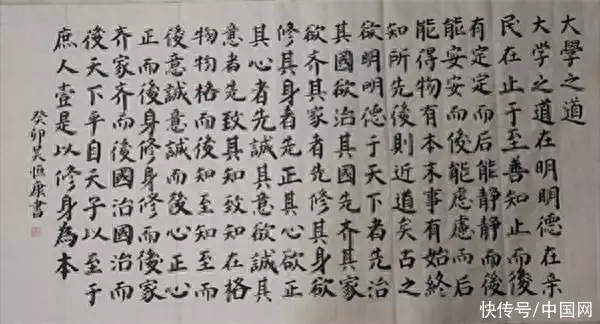 大學之道
大学之道在明明德在亲
民在止于至善知止而後
有定定而后能静静而後
能安安而後能慮慮而后
能得物有本末事有始終
知所先後則近道矣古之
欲明明德于天下者先治
其國欲治其國先齊其家
欲齊其家者先修其身欲
修其身者先正其心欲正
其心者先誠其意欲誠其
意者先致其知致知在格
物物格而後知至知至而
後意誠意誠而後心正心
正而後身修身修而後家
齊家齊而後國治國治而
後天下平自天子以至于
庶人壹是以修身為本
癸卯吴恒康書
快传号/中国网